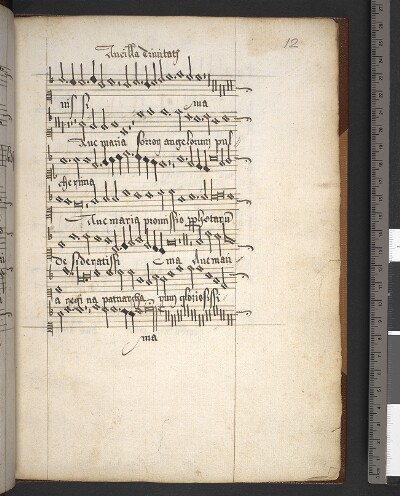 12
Ancilla trinitatis
nis si ma
Aue maria soror angelorum pul
cherrima
Aue maria promissio prophetarum
desideratissi ma Aue mari
a regina patriarcha rum gloriosissi
ma